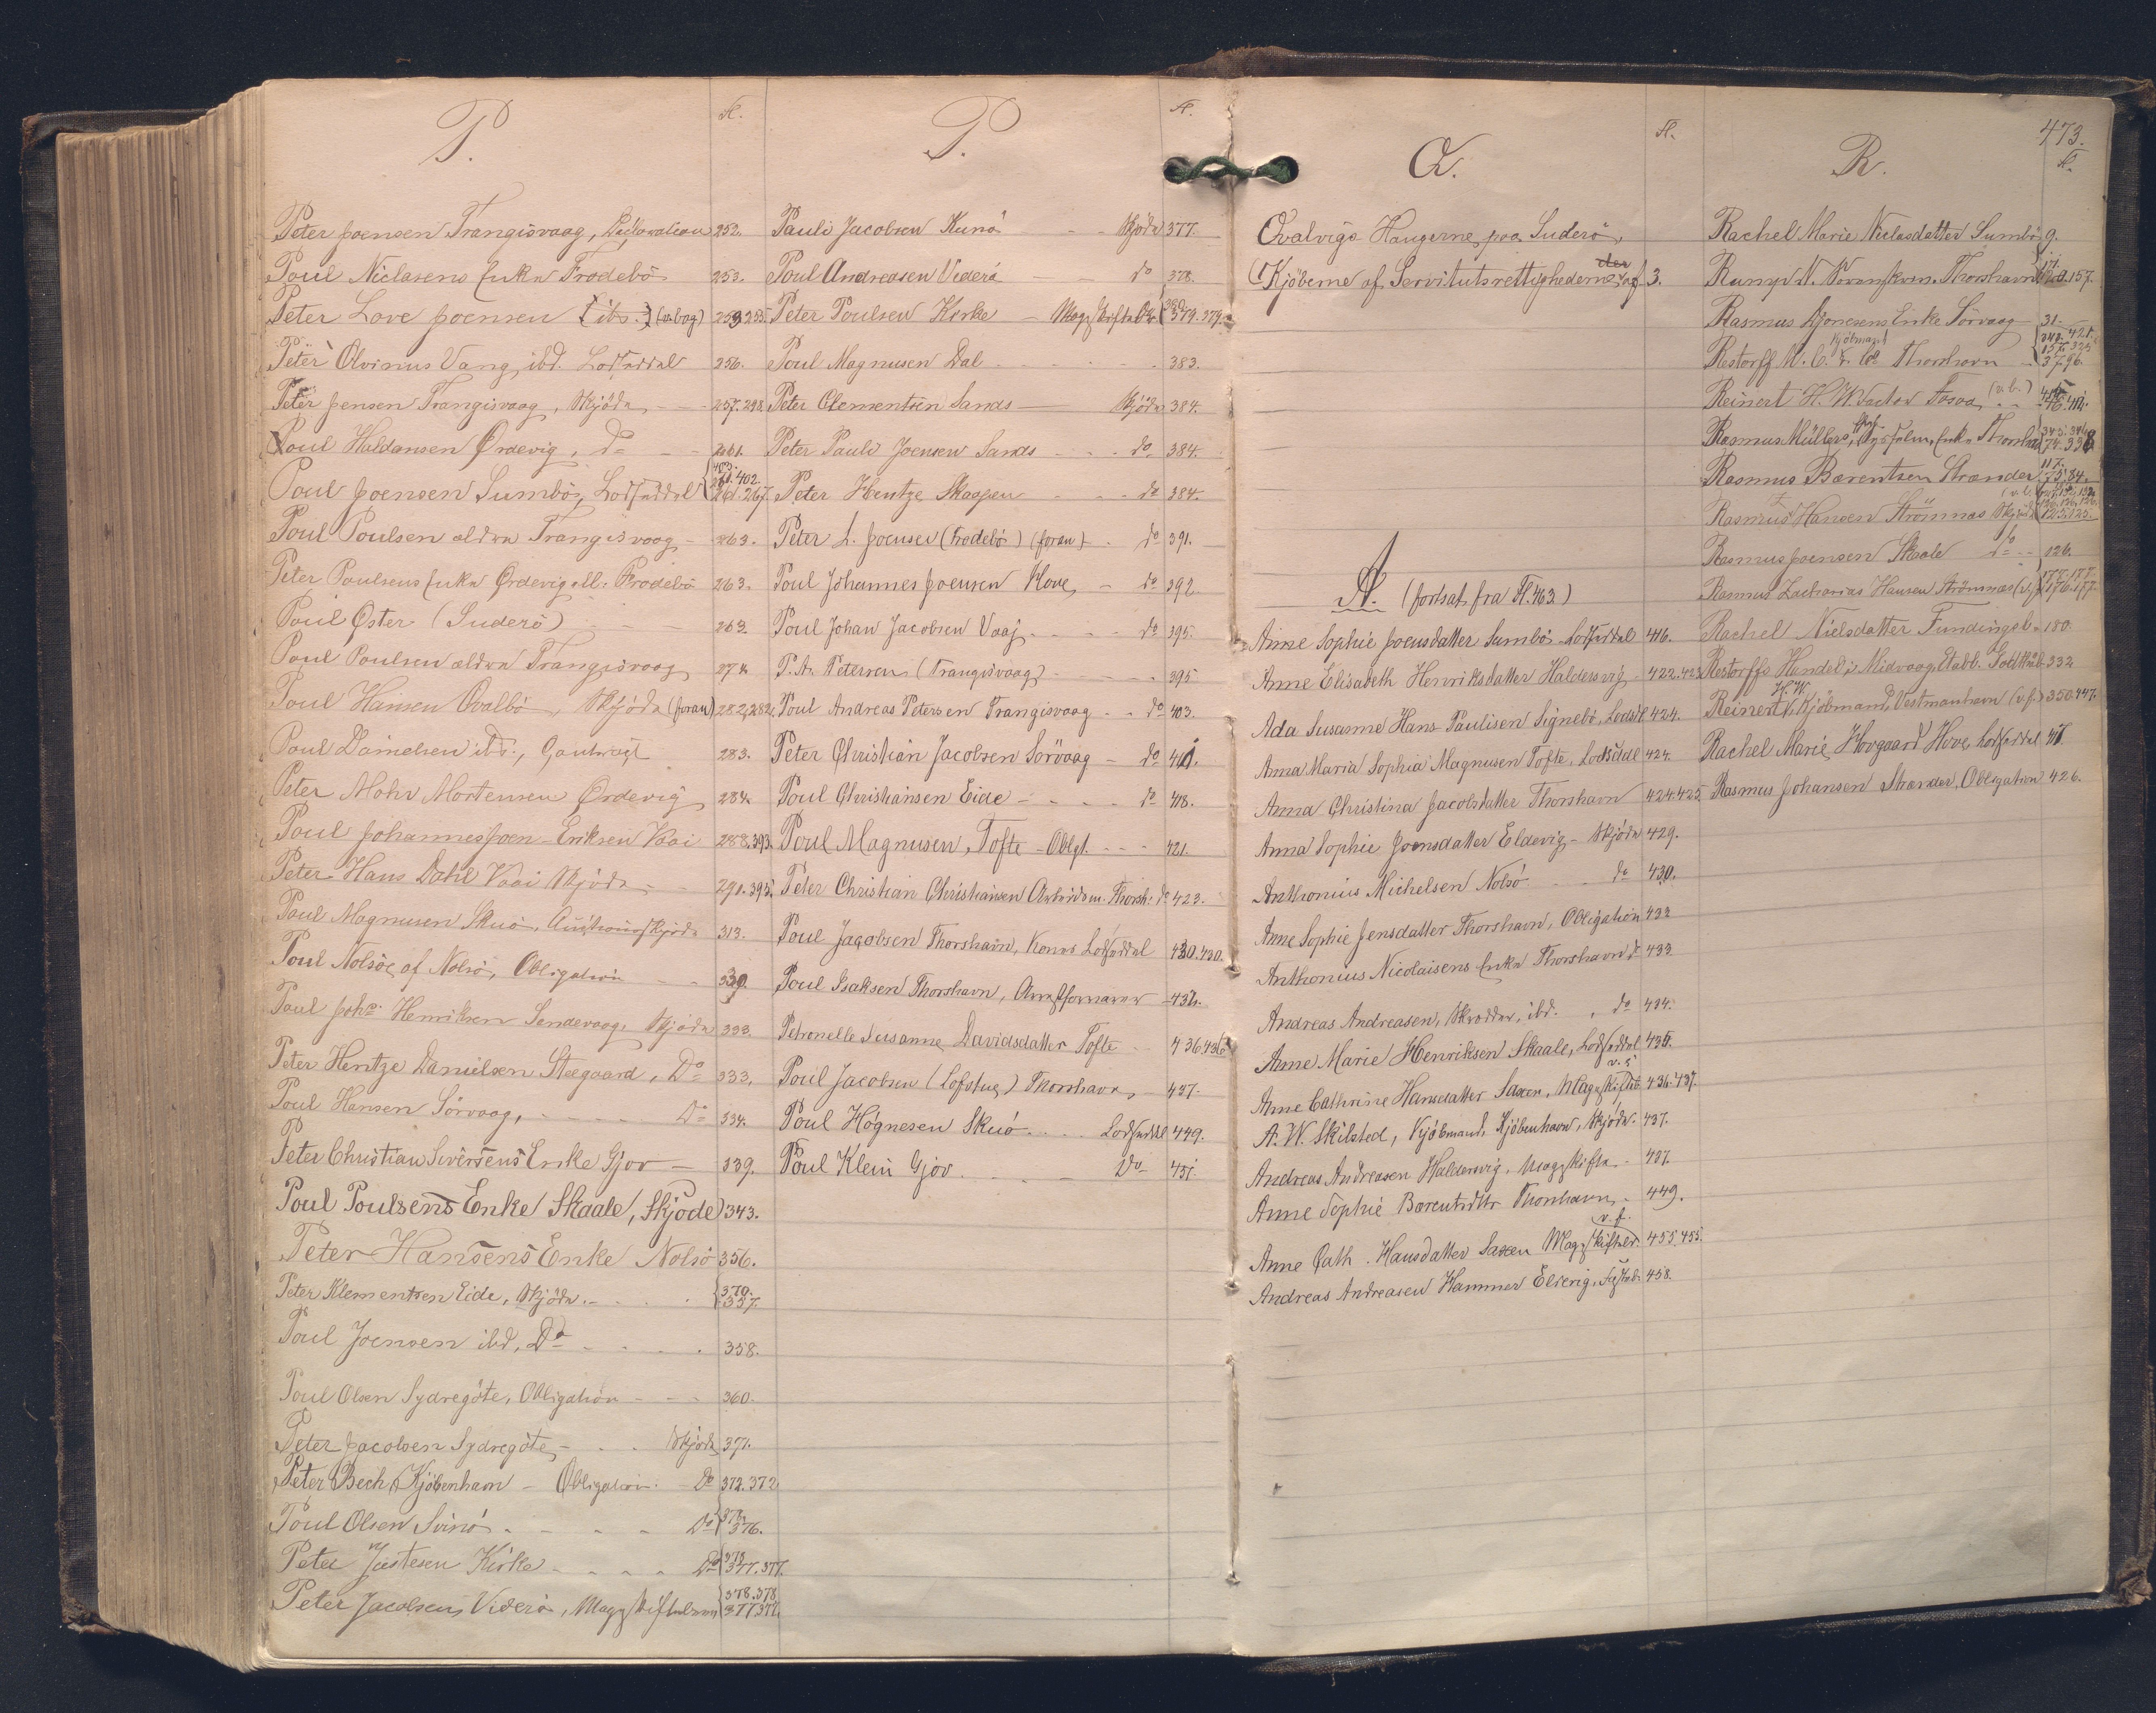 P.
Fl.
Peter Joensen Trangisvaag, Deklaration 252.
Poul Niclasens Enke Frodebö 253.
Peter Love Joensen (ibd.) (v. bag) 253.255.
Peter Olvinus Vang, ibd. Lodseddel 256.
Peter Jensen Trangisvaag, Skjöde - - 257.298.
Poul Haldansen Ördevig, Do - - 261.
Poul Joensen Sumbö, Lodseddel 403. 261.402. 261.267.
Poul Poulsen ældre Trangisvaag - 263.
Peter Poulsens Enke Ördevig ell. Frodebö 263.
Poul Öster (Suderö) - - - 263.
Poul Poulsen ældre Trangisvaag 274.
Poul Hansen Qvalbö, Skjöde (foran) 282,282.
Poul Danielsen ibd., 283.
Peter Mohr Mortensen Ördevig 284.
Poul Johannes Joen-Eriksen Vaai 288.393.
Peter Hans Dahl Vaai Skjöde - - 290.395.
Poul Magnusen Skuö, Auktionsskjöde 313.
Poul Nolsöe of Nolsö, Obligation - - 330.
Poul Johs. Henriksen Sandevaag, Skjöde 333.
Peter Hentze Danielsen Steegaard, Do 333.
Poul Hansen Sörvaag, - - - Do 334.
Peter Christian Sivertsens Enke Gjov - 339.
Poul Poulsens Enke Skaale, Skjöde 343.
Peter Hansens Enke Nolsö 356.
Peter Klementsen Eide, Skjöde - - - 370. 357.
Poul Joensen ibd, Do - - - 358.
Poul Olsen Sydregöte, Obligation - - - 360.
Peter Jacobsen Sydregöte, - - - Skjöde 371.
Peter Bech, Kjöbenhavn - Obligation - Do 372.372
Poul Olsen Svinö - - - - Do 376.
Peter Justesen Kirke - - - - Do 378 377.377.
Peter Jacobsen, Viderö, Mageskifte 378.378. 377.377.
P.
Fl.
Pauli Jacobsen Kunö - - Skjöde 377.
Poul Andreasen Viderö - do 378.
Peter Poulsen Kirke - Mageskifte 380. 379.379.
Poul Magnusen Dal - - - - 383.
Peter Clementsen Sands - Skjöde 384.
Peter Pauli Joensen Sands - - - do 384.
Peter Hentze Skaapen - - - do 384.
Peter L. Joensen (Frodebö) (foran) - do 391.
Poul Johannes Joensen Hove, - do 392.
Poul Johan Jacobsen Vaaj - - - - do 395.
P. A. Petersen (Trangisvaag) - - - 395
Poul Andreas Petersen Trangisvaag - - do 403.
Peter Christian Jacobsen Sörvaag - do 411.
Poul Christiansen Eide - - - - do 418.
Poul Magnusen, Tofte - Oblgt. - - - 421.
Peter Christian Christiansen Arbeidsm. Thorsh. do 423.
Poul Jacobsen Thorshavn, Lodseddel 430.430.
Poul Isaksen Thorshavn, 434.
Petronelle Susanne Davidsdatter Tofte - 436.436
Poul Jacobsen (Lofstue) Thorshavn, - 437.
Poul Högnesen Skuö - - - - Lodseddel 449.
Poul Klein Gjov - - - - Do 451.
Q.
Fl.
Qvalvigs Haugerne paa Suderö,
(Kjöberne af Servitutsrettighederne 3.
A. (fortsat fra Fl. 463.)
Anne Sophie Joensdatter Sumbö Lodseddel 416.
Anne Elisabeth Henriksdatter Haldersvig - 422.423
Ada Susanne Hans Paulisen Signebö, Lodsd. 424.
Anna Maria Sophia Magnusen Tofte, Lodseddel 424.
Anna Christina Jacobsdatter Thorshavn 424.425.
Anna Sophie Joensdatter Eldevig - Skjöde 429.
Anthonius Michelsen Nolsö - - do 430.
Anne Sophie Jensdatter Thorshavn, Obligation 433
Anthonius Nicolaisens Enke Thorshavn do 433
Andreas Andreasen, Skrædder, ibd. , do 434.
Anne Marie Henriksen Skaale, Lodseddel 435.
Anne Cathrine Hansdatter Saxen, Mageskifteb. 436.437.
A. W. Skilsted, Kjöbmand, Kjöbenhavn, Skjöde. 437.
Andreas Andreasen Haldersvig, Mageskifte - 437.
Anne Sophie Barentsdttr Thorshavn, - 449.
v. f.
Anne Cath. Hansdatter Saxen Mageskiftebr. 455.455.
Andreas Andreasen Hammer Elderig, 458.
473.
R.
Fl.
Rachel Marie Niclasdatter Sumbö 9.
Rasmus Djonesens Enke Sörvaag - 31.
Restorff M. C. Kjöbmand & Co Thorshavn - 348.421. 37.96.
Reinert H. W. Factor Tvöraa (v. b.)
Rasmus Müllers, Sysselm. Enke Thorshavn 345.346. 74.338
Rasmus Barentsen Strænder 117. 75.84.
Rasmus Hansen Strömnæs Skjöde 125.125.
Rasmus Joensen Skaale do - - 126.
Rasmus Zacharias Hansen Strömnæs (v. f.) 177.177. 176.177.
Rachel Nielsdatter Fundingsb. 180.
Restorffs Handel i Midvaag, Etabl. 332
Reinert H. W., Kjöbmand, Vestmanhavn (v. f.) 350.447.
Rachel Marie Hovgaard Hove, Lodseddel
Rasmus Johansen Strænder, Obligation 426.